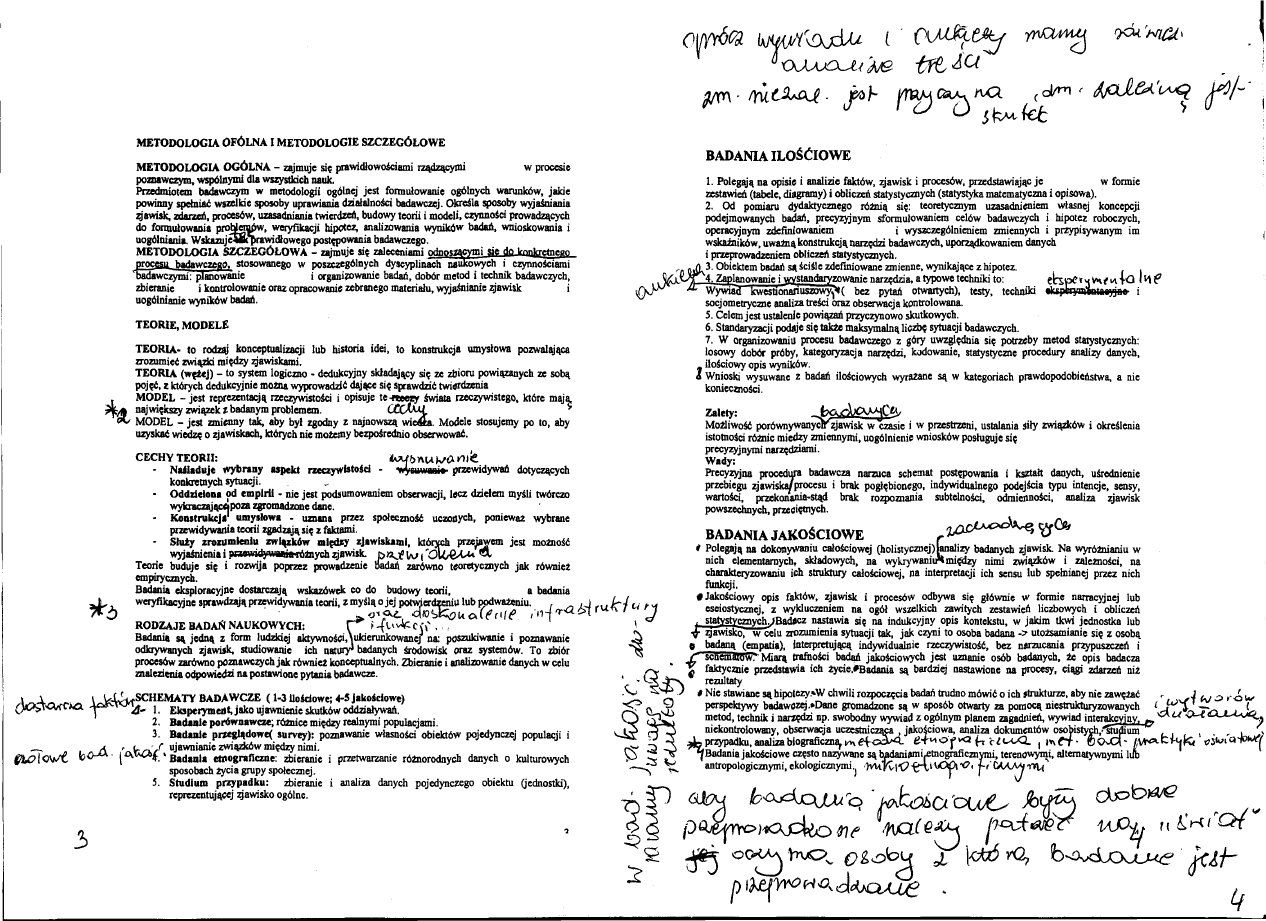 METODOLOGIA OFÓLNA I METODOLOGIE SZCZEGÓŁOWE
METODOLOGIA OGÓLNA – zajmuje się prawidłowościami rządzącymi w procesie
poznawczym, wspólnymi dla wszystkich nauk.
Przedmiotem badawczym w metodologii ogólnej jest formułowanie ogólnych warunków, jakie
powinny spełniać wszelkie sposoby uprawiania działalności badawczej. Określa sposoby wyjaśniania
zjawisk, zdarzeń, procesów, uzasadniania twierdzeń, budowy teorii i modeli, czynności prowadzących
do formułowania problemów, weryfikacji hipotez, analizowania wyników badań, wnioskowania i
uogólniania. Wskazuje prawidłowego postępowania badawczego.
METODOLOGIA SZCZEGÓŁOWA – zajmuje się zaleceniami odnoszącymi się do konkretnego
procesu badawczego, stosowanego w poszczególnych dyscyplinach naukowych i czynnościami
badawczymi: planowanie i organizowanie badań, dobór metod i technik badawczych,
zbieranie i kontrolowanie oraz opracowanie zebranego materiału, wyjaśnianie zjawisk i
uogólnianie wyników badań.
TEORIE, MODELE
TEORIA- to rodzaj konceptualizacji lub historia idei, to konstrukcja umysłowa pozwalająca
zrozumieć związki między zjawiskami.
TEORIA (węžej) – to system logiczno - dedukcyjny składający się ze zbioru powiązanych ze sobą
pojęć, z których dedukcyjnie można wyprowadzić dające się sprawdzić twierdzenia
MODEL – jest reprezentacją rzeczywistości i opisuje te rzeczy świata rzeczywistego, które mają
*2 największy związek z badanym problemem. cechy
MODEL – jest zmienny tak, aby był zgodny z najnowszą wiedza. Modele stosujemy po to, aby
uzyskać wiedzę o zjawiskach, których nie możemy bezpośrednio obserwować.
CECHY TEORII: wysnuwanie
- Naśladuje wybrany aspekt rzeczywistości - wysuwanie przewidywań dotyczących
konkretnych sytuacji.
- Oddzielona od empirii - nie jest podsumowaniem obserwacji, lecz dziełem myśli twórczo
wykraczającą poza zgromadzone dane.
- Konstrukcja umysłowa - uznana przez społeczność uczonych, ponieważ wybrane
przewidywania teorii zgadzają się z faktami.
- Służy zrozumieniu związków między zjawiskami, których przejawem jest możność
wyjaśnienia i przewidywanie różnych zjawisk. przewidzenia
Teorie buduje się i rozwija poprzez prowadzenie badań zarówno teoretycznych jak również
empirycznych.
Badania eksploracyjne dostarczają wskazówek co do budowy teorii, a badania
*3 weryfikacyjne sprawdzają przewidywania teorii, z myślą o jej potwierdzeniu lub podważeniu.
oraz doskonalenie infrastruktury
i funkcji...
RODZAJE BADAŃ NAUKOWYCH:
Badania są jedną z form ludzkiej aktywności, ukierunkowanej na: poszukiwanie i poznawanie
odkrywanych zjawisk, studiowanie ich natury badanych środowisk oraz systemów. To zbiór
procesów zarówno poznawczych jak również konceptualnych. Zbieranie i analizowanie danych w celu
znalezienia odpowiedzi na postawione pytania badawcze.
SCHEMATY BADAWCZE ( 1-3 ilościowe; 4-5 jakościowe)
dostarcza faktów
1. Eksperyment, jako ujawnienie skutków oddziaływań.
2. Badanie porównawcze; różnice między realnymi populacjami.
3. Badanie przeglądowe( survey): poznawanie własności obiektów pojedynczej populacji i
ujawnianie związków między nimi.
czołowe bad. jakość.
4. Badania etnograficzne: zbieranie i przetwarzanie różnorodnych danych o kulturowych
sposobach życia grupy społecznej.
5. Studium przypadku: zbieranie i analiza danych pojedynczego obiektu (jednostki),
reprezentującej zjawisko ogólne.
3
oprócz wywiadu i ankiety mamy również
analizę treści
zm. niezal. jest przyczyna, zm. zależną jest
skutek
BADANIA ILOŚĆIOWE
1. Polegają na opisie i analizie faktów, zjawisk i procesów, przedstawiając je w formie
zestawień (tabele, diagramy) i obliczeń statystycznych (statystyka matematyczna i opisowa).
2. Od pomiaru dydaktycznego różnią się: teoretycznym uzasadnieniem własnej koncepcji
podejmowanych badań, precyzyjnym sformułowaniem celów badawczych i hipotez roboczych,
operacyjnym zdefiniowaniem i wyszczególnieniem zmiennych i przypisywanym im
wskaźników, uważną konstrukcją narzędzi badawczych, uporządkowaniem danych
i przeprowadzeniem obliczeń statystycznych.
3. Obiektem badań są ściśle zdefiniowane zmienne, wynikające z hipotez.
ankieta
4. Zaplanowanie i wystandaryzowanie narzędzia, a typowe techniki to: eksperymentalne
Wywiad kwestionariuszowy, ( bez pytań otwartych), testy, techniki eksperymentacyjne i
socjometryczne analiza treści oraz obserwacja kontrolowana.
5. Celem jest ustalenie powiązań przyczynowo skutkowych.
6. Standaryzacji podaje się także maksymalną liczbę sytuacji badawczych.
7. W organizowaniu procesu badawczego z góry uwzględnia się potrzeby metod statystycznych:
losowy dobór próby, kategoryzacja narzędzi, kodowanie, statystyczne procedury analizy danych,
ilościowy opis wyników.
8 Wnioski wysuwane z badań ilościowych wyrażane są w kategoriach prawdopodobieństwa, a nie
konieczności.
Zalety: badanych
Możliwość porównywanych zjawisk w czasie i w przestrzeni, ustalania siły związków i określenia
istotności różnic miedzy zmiennymi, uogólnienie wniosków posługuje się
precyzyjnymi narzędziami.
Wady:
Precyzyjna procedura badawcza narzuca schemat postępowania i kształt danych, uśrednienie
przebiegu zjawiska/procesu i brak pogłębionego, indywidualnego podejścia typu intencje, sensy,
wartości, przekonania-stąd brak rozpoznania subtelności, odmienności, analiza zjawisk
powszechnych, przeciętnych.
BADANIA JAKOŚCIOWE zachodzących
Polegają na dokonywaniu całościowej (holistycznej) analizy badanych zjawisk. Na wyróżnianiu w
nich elementarnych, składowych, na wykrywaniu między nimi związków i zależności, na
charakteryzowaniu ich struktury całościowej, na interpretacji ich sensu lub spełnianej przez nich
funkcji.
Jakościowy opis faktów, zjawisk i procesów odbywa się głównie w formie narracyjnej lub
eseistycznej, z wykluczeniem na ogół wszelkich zawitych zestawień liczbowych i obliczeń
statystycznych, Badacz nastawia się na indukcyjny opis kontekstu, w jakim tkwi jednotka lub
zjawisko, w celu zrozumienia sytuacji tak, jak czyni to osoba badana -> utożsamianie się z osobą
badaną (empatia), interpretującą indywidualnie rzeczywistość, bez narzucania przypuszczeń i
schematów. Miarą trafności badań jakościowych jest uznanie osób badanych, że opis badacza
faktycznie przedstawia ich życie. Badania są bardziej nastawione na procesy, ciągi zdarzeń niż
rezultaty
Nie stawiane są hipotezy. W chwili rozpoczęcia badań trudno mówić o ich strukturze, aby nie zawężać
perspektywy badawczej. Dane gromadzone są w sposób otwarty za pomocą niestrukturyzowanych
metod, technik i narzędzi np. swobodny wywiad z ogólnym planem zagadnień, wywiad interakcyjny,
i wytworów
działania,
niekontrolowany, obserwacja uczestnicząca , jakościowa, analiza dokumentów osobistych, studium
przypadku, analiza biograficzna, metoda etnograficzna, met. bad. praktyki oświatowej
Badania jakościowe często nazywane są badaniami etnograficznymi, terenowymi, alternatywnymi lub
antropologicznymi, ekologicznymi, mikroetnograficznymi
w bad. jakość. dw.
zwracamy uwagę na
rezultaty.
aby badania jakościowe były dobrze
przeprowadzone należy patrzeć na „świat"
jej oczyma osoby z którą badanie jest
przeprowadzane.
4